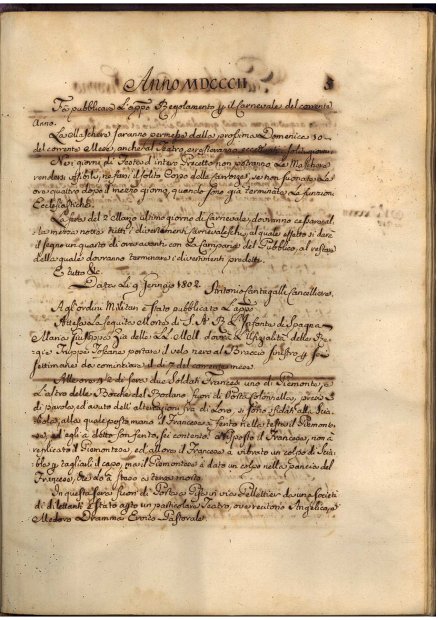 Anno MDCCCII. 5
Fù pubblicato l'appo Regolamento p il Carnevale del corrente
Anno.
Le Maschere saranno permesse dalla prossima Domenica 10
del corrente Mese, anche al Teatro, e resteranno eccettuati soliti giorni
Nei giorni di Festa d'intero Precetto non potranno le Maschere
rendersi visibili, ne farsi il solito Corso delle Carrozze, se non suonate le
ore quattro dopo il mezzo giorno, quando sono già terminate le funzioni
Ecclesiastiche.
La sera del 2 Marzo ultimo giorno di Carnevale, dovranno cessare al-
la mezza notte tutti i divertimenti Carnevaleschi, al quale effetto si darà
il segno un quarto di ora avanti con la Campana del Pubblico, al restare
della quale dovranno terminare i divertimenti predetti.
E tutto &c.
Data Li 9 Gennajo 1802. Antonio Cantagalli Cancelliere.
Agli ordini Militari è stato pubblicato l'appo
Attesa la seguita morte di S. A. R. l'Infanta di Spagna
Maria Giuseppa Zia delle LL. MM. dovrà l'Ufizialità delle Re-
gie Truppe Toscane portare il velo nero al Braccio sinistro p sei
settimane da cominciare il dì 7 del corrente mese.
Alle ore 1/2 di sera due Soldati Francesi uno di Piemonte, e
l'altro delle Bocche del Rodano fuori di Porta Colonnella, presi
di parole, ed avuto dell'alterazioni fra di Loro, si sono sfidati alla Scia-
bola, alla quale posta mano il Francese à ferito nella testa il Piemont-
ese, ed egli à detto son ferito, sei contento? Risposto il Francese, non à
replicato il Piemontese, ed allora il Francese à vibrato un colpo di Scia-
bla p tagliarli il capo, ma il Piemontese à dato un colpo nella pancia del
Francese, e lo à steso a terra morto.
In questa sera fuori di Porta a Pisa in via Pellettier da una società
di dilettanti è stato apto un particolare Teatro, ove recitono Angelica, e
Medoro Dramma Eroico Pastorale.